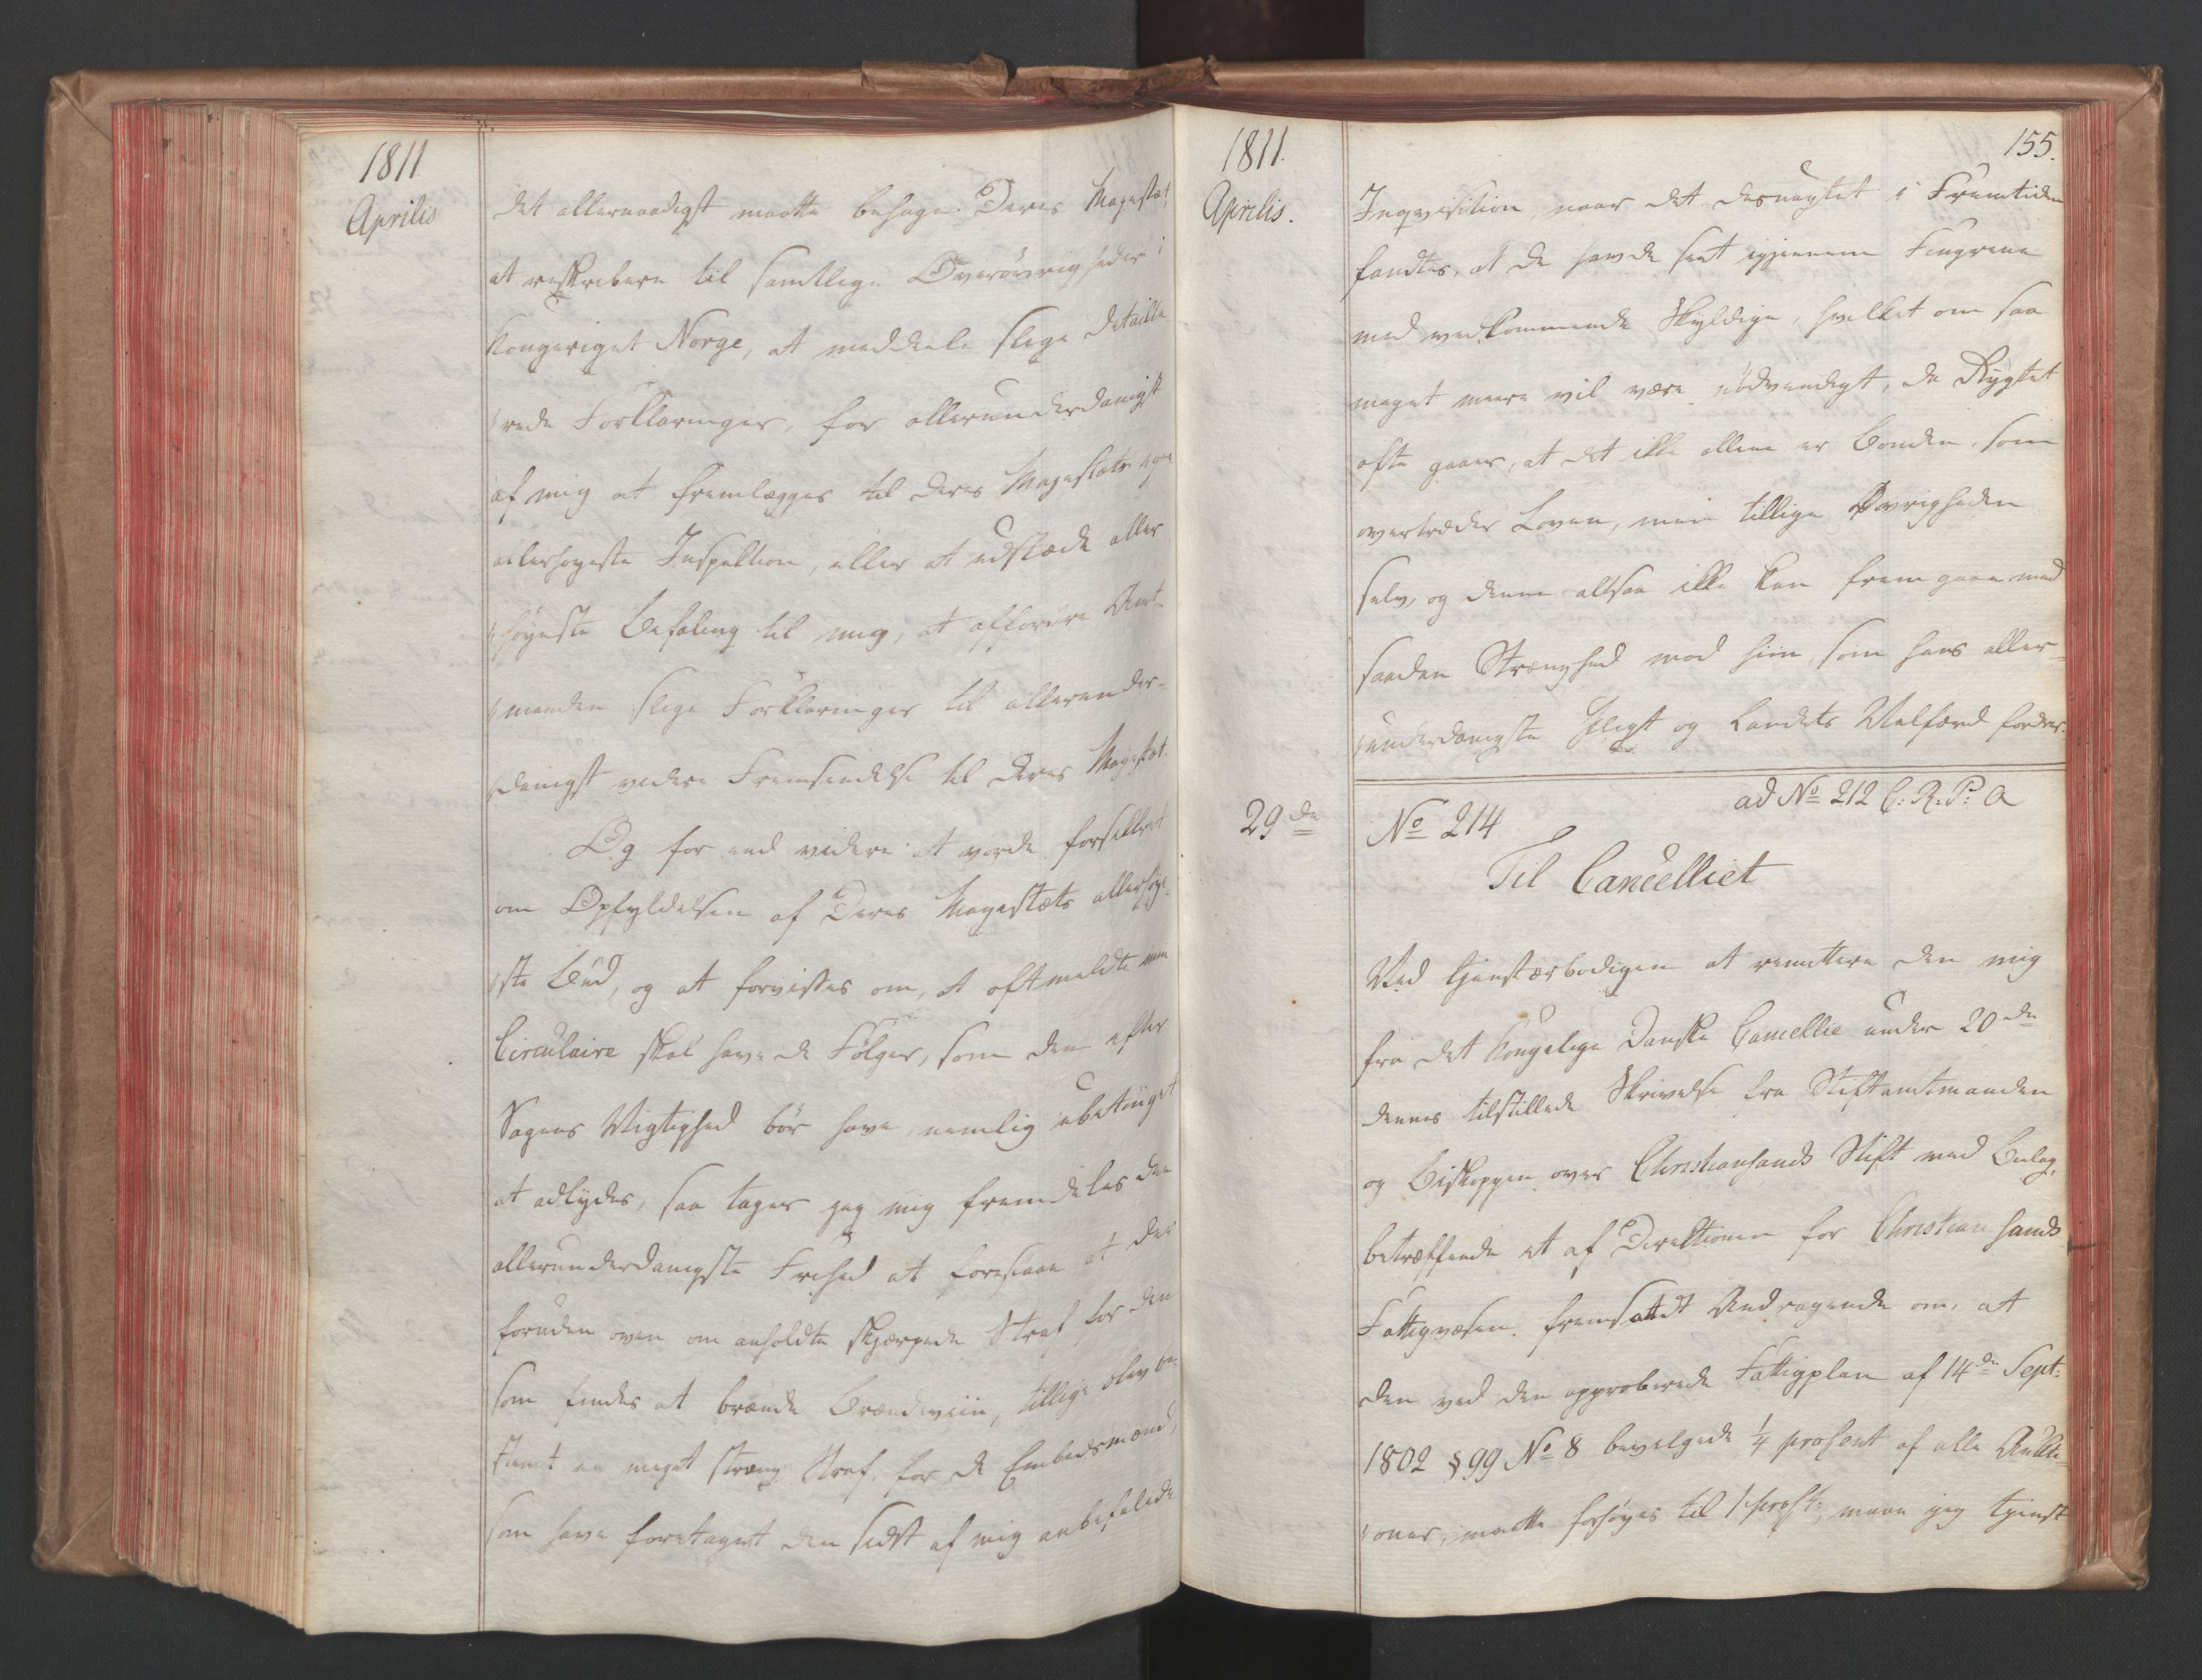 1811
Aprilis
det allernaadigst maatte behage Deres Majestæt,
at reskribere til samtlige Överövrigheder i
Kongeriget Norge, at meddele slige detaille-
rede Forklaringer, for allerunderdanigst
af mig at fremlægges til Deres Majestæts egen
allerhøyeste Inspektion, eller at udstæde aller
høyeste Befaling til mig, at affordre Amt-
manden slige Forklaringer til allerunder-
danigst videre Fremsendelse til Deres Majestæt.
Og for end videre at vorde forsikkret
om Opfyldelsen af Deres Majestæts allerhøye-
ste Bud, og at forvisses om, at oftmeldte min
Circulaire skal have de Følger, som den efter
Sagens Vigtighed bør have, nemlig ubetinget
at adlydes, saa tager jeg mig fremdeles den
allerunderdanigste Frihed at foreslaae at der
foruden oven om anholdte skjærpede Straf for den
som findes at brænde Brændeviin, tillige blev be-
stemt en meget streng Straf for de Embedsmænd,
som have foretaget den sidst af mig anbefalede
1811.
Aprilis.
155.
Inqvisition, naar det desuagtet i Fremtiden
fandtes, at de havde seet igjennem Fingrene
med vedkommende Skyldige, hvilket om saa
meget meere vil være nødvendigt, da Rygtet
ofte gaaer, at det ikke allene er Bonden, som
overtræder Loven, men tillige Øvrigheden
selv, og denne altsaa ikke kan frem gaae med
saadan Strenghed mod hiin, som hans aller-
underdanigste Pligt og Landets Velfærd fordrer.
29de
No 214
ad No 212 C: R: P: A
Til Cancelliet
Ved tjenstærbødigen at remittere den mig
fra det Kongelige Danske Cancellie under 20de
dennes tilstillede Skrivelse fra Stiftamtmanden
og Biskoppen over Christiansands Stift med Bilag,
betræffende et af Direktionen for Christiansands
Fattigvæsen fremsatte Andragende om, at
den ved den approberede Fattigplan af 14de Sept:
1802 § 99 No 8 bevilgede 1/4 prosent af alle Aukti-
oner, maatte forhøyes til 1 pros:t, maae jeg tjenst